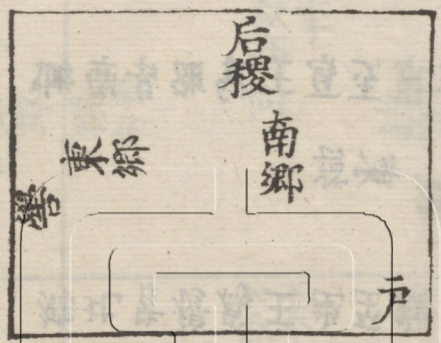 后稷
南鄉
東鄉
嚳
户